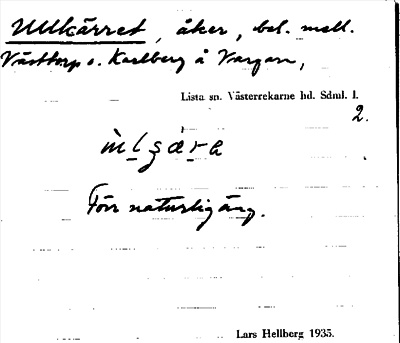 Ullkärret, åker, bel. mell.
Västtorp o. Karlberg å Vargan,
Lista sn. Västerrekarne hd. Sdml. 1.
2.
Förr naturlig äng.
Lars Hellberg 1935.